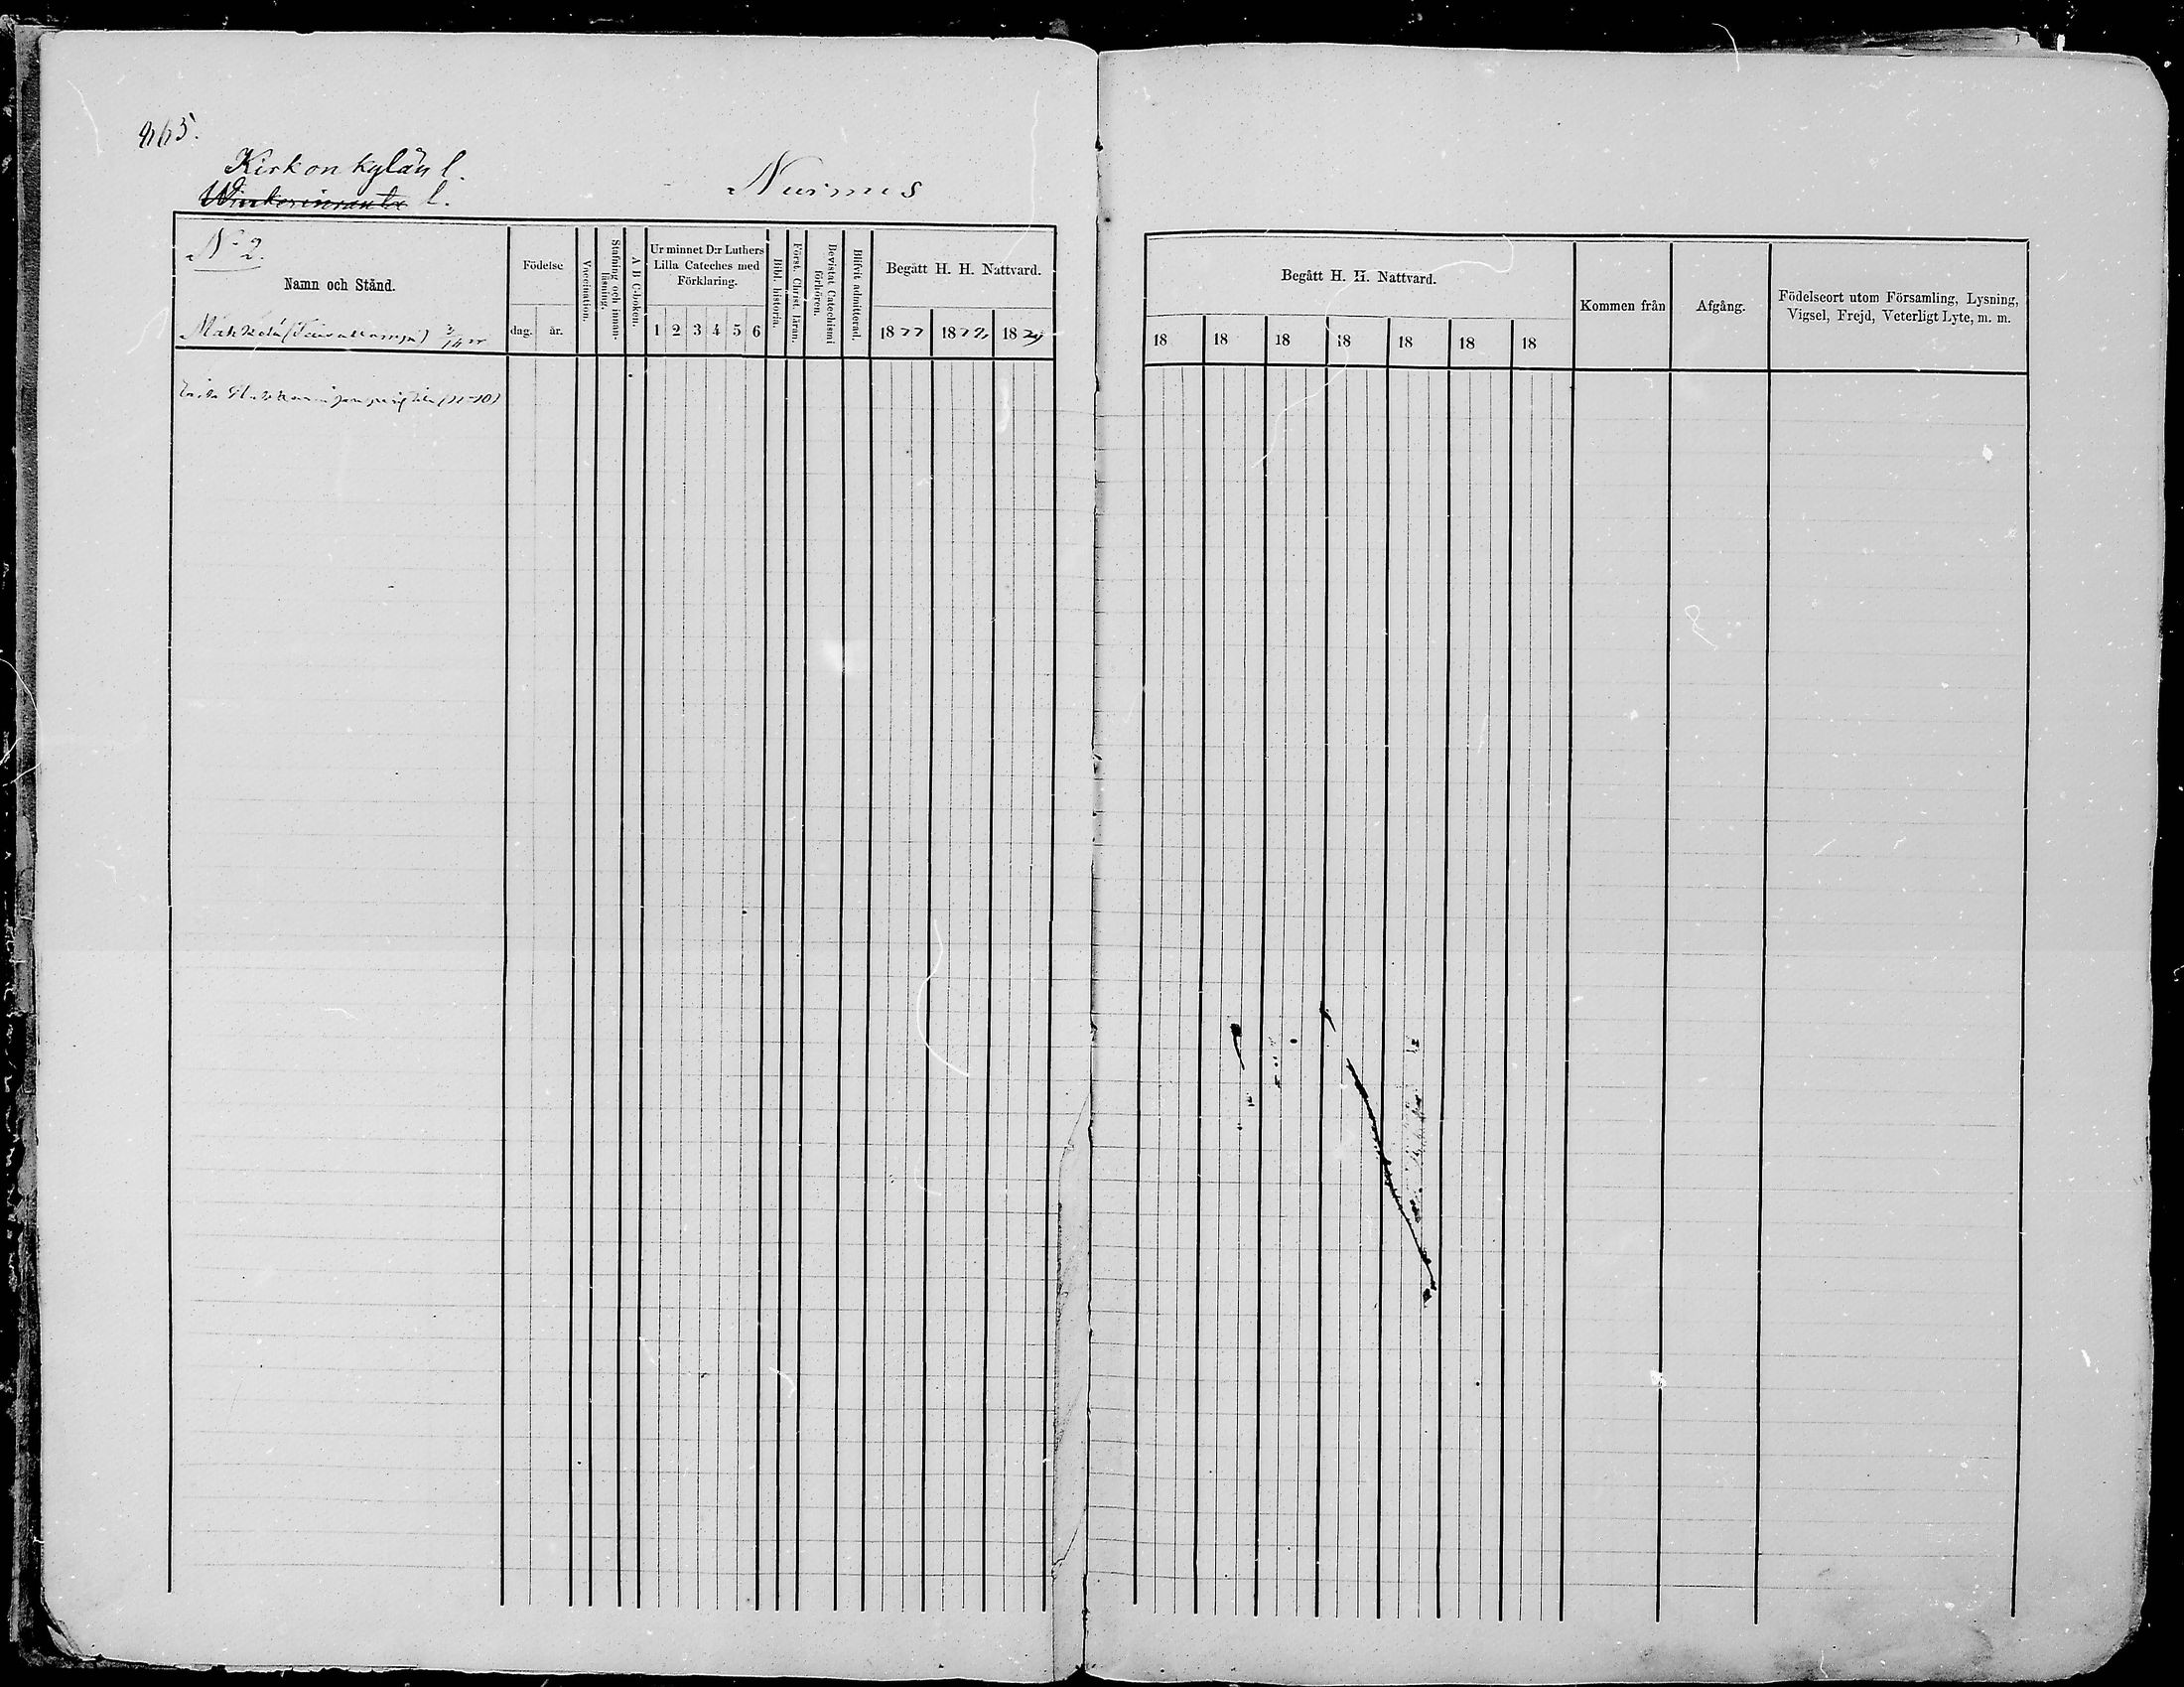 Kirkonkylän l.
Nurmes
l.
No 2.
Namn och Stånd.
Födelse
dag. år.
Vaccination.
Stafning och innan-
läsning.
A B C-boken.
Ur minnet D:r Luthers
Lilla Cateches med
Förklaring.
1 2 3 4 5 6
Bibl. historia.
Först. Christ. läran.
Bevistat Catechismi
förhören.
Blifvit admitterad.
Begått H. H. Nattvard.
1877
Begått H. H. Nattvard.
18 18 18 18 18 18 18
Kommen från
Afgång.
Födelseort utom Församling, Lysning,
Vigsel, Frejd, Veterligt Lyte, m. m.